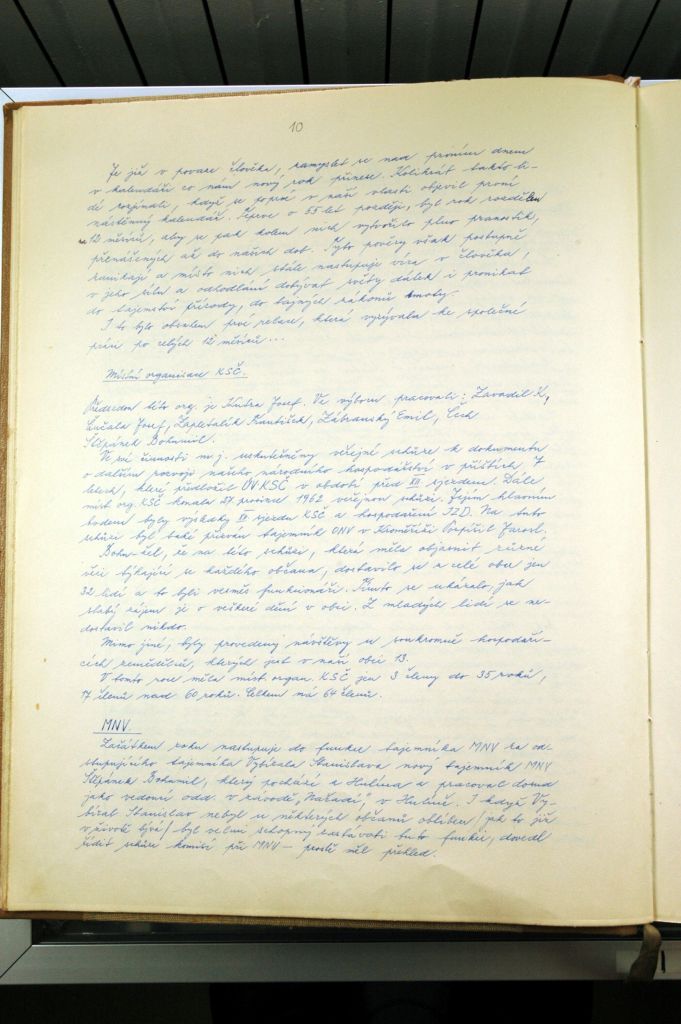 10
Je již v povaze člověka, zamyslet se nad prvním dnem
v kalendáři co nám nový rok přinese. Kolikrát takto li-
dé vzpínali, když se poprve v naší vlasti objevil první
nástěnný kalendář. Teprve o 55 let později, byl rok rozdělen
na 12 měsíců, aby se pak kolem nich vytvořilo plno pranostik,
přenášených až do našich dob. Tyto pověry však postupně
zanikají a místo nich stále nastupuje víra v člověka,
v jeho sílu a odhodlání dobývat světy dálek i pronikat
do tajemství přírody, do tajných zákonů hmoty.
I to bylo obsahem prvé relace, která vyzývala ke společné
práci po celých 12 měsíců...
Místní organisace KSČ.
Předsedou této org. je Kutra Josef. Ve výboru pracovali: Zavadil K.,
Lučala Josef, Zapletalík František, Zábranský Emil, Čech
Štěpánek Bohumil.
Ve své činnosti m. j. uskutečněny veřejné schůze k dokumentu
o dalším rozvoji našeho národního hospodářství v příštích 7
letech, který předložil ÚV KSČ v období před XII sjezdem. Dále
míst org. KSČ konala 27 prosince 1962 veřejnou schůzi. Jejím hlavním
bodem byly výsledky sjezdu KSČ a hospodaření JZD. Na tuto
schůzi byl také pozván tajemník ONV v Kroměříži Pospíšil Jarosl.
Bohu-žel, že na této schůzi, která měla objasnit různé
věci týkající se každého občana, dostavilo se z celé obce jen
32 lidí a to byli vesměs funkcionáři. Tímto se ukázalo, jak
slabý zájem je o veškeré dění v obci. Z mladých lidí se ne-
dostavil nikdo.
Mimo jiné, byly provedeny návštěvy u soukromě hospodaří-
cích zemědělců, kterých jest v naší obci 13.
V tomto roce měla míst. organ. KSČ jen 3 členy do 35 roků,
17 členů nad 60 roků. Celkem má 64 členů.
MNV.
Začátkem roku nastupuje do funkce tajemníka MNV za od-
stupujícího tajemníka Vybírala Stanislava nový tajemník MNV
Štěpánek Bohumil, který pochází z Hulína a pracoval dosud
jako vedoucí odd. v závodě "Nářadí" v Hulíně. I když Vy-
bíral Stanislav nebyl u některých občanů oblíben /jak to již
v životě bývá/ byl velmi schopný zastávati tuto funkci, dovedl
řídit schůze komisí při MNV - prostě měl přehled.